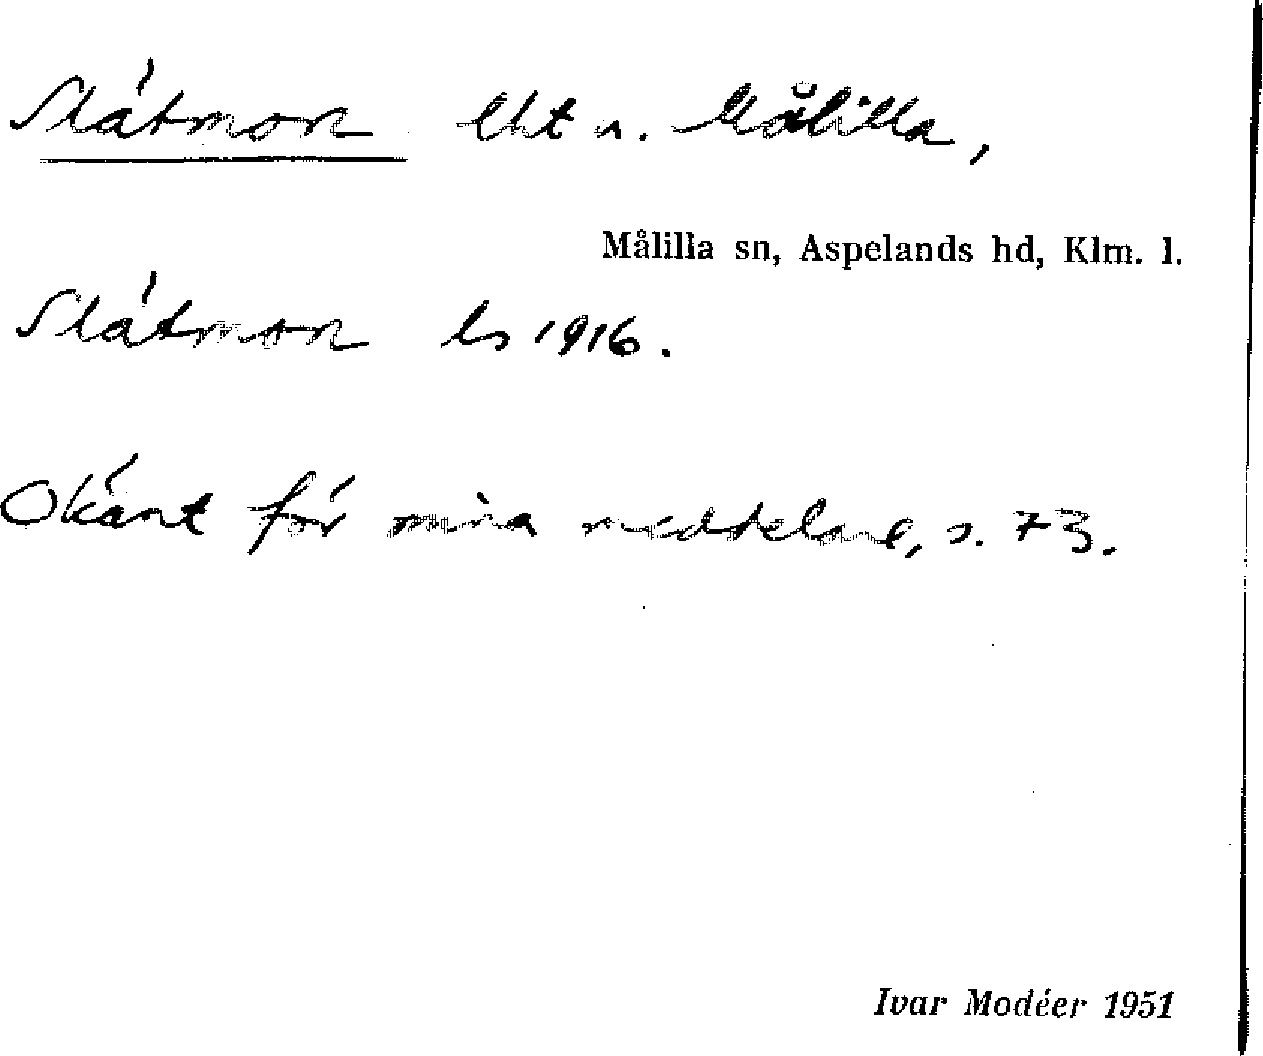 Slätmon lht n. Målilla,
Målilla sn, Aspelands hd, Klm. l.
Slätmon ls 1916.
Okänt för mina meddelare, s. 73.
Ivar Modéer 1951